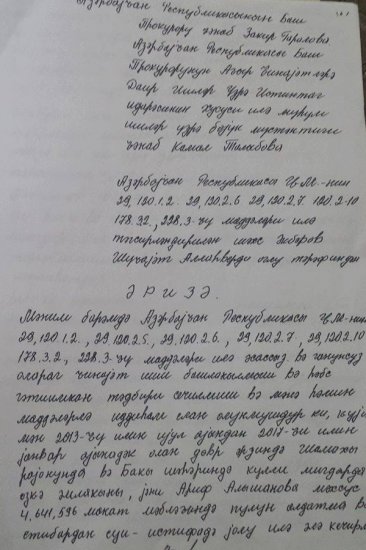 Азәрбајҹан Республикасынын Баш
Прокурору ҹәнаб Закир Гараловa
Азәрбајҹан Республикасы Баш
Прокурорунун Ағыр Ҹинајәтләрә
Даир Ишләр Үзрә Истинтаг
идарәсинин хүсуси илә
ишләр үзрә бөјүк мүстәнтиги
ҹәнаб Камал
Азәрбајҹан Республикасы ҸМ-нин
29,120.1.2. 29,120.2.6 29,120.2.7 120.2-10
178.3.2., 228.3-ҹү маддәләри илә
тәгсирләндирилән шәхс
Шүҹајәт Аллаһверди оғлу тәрәфиндән
ӘРИЗӘ.
Мәним барәмдә Азәрбајҹан Республикасы ҸМ-нин
29,120.1.2., 29,120.2.5., 29,120.2.6., 29,120.2.7., 29,120.2.10
178.3.2., 228.3-ҹү маддәләри илә әсассыз вә ганунсуз
олараг ҹинајәт иши башланылмыш вә һәбс
гәтимкан тәдбири сечилмиш вә мәнә һәмин
маддәләрлә иттиһам елан олунмушдур ки, ҝуја
мән 2013-ҹү илин ијул ајындан 2017-ҹи илин
јанвар ајынадәк олан дөвр әрзиндә Шамахы
рајонунда вә Бакы шәһәриндә күлли мигдарда
өзҝә әмлакыны, јәни Ариф Алышанова мәхсус
4,641,596 манат мәбләғиндә пулун алдатма вә
етибардан суи-истифадә јолу илә әлә кечирмә